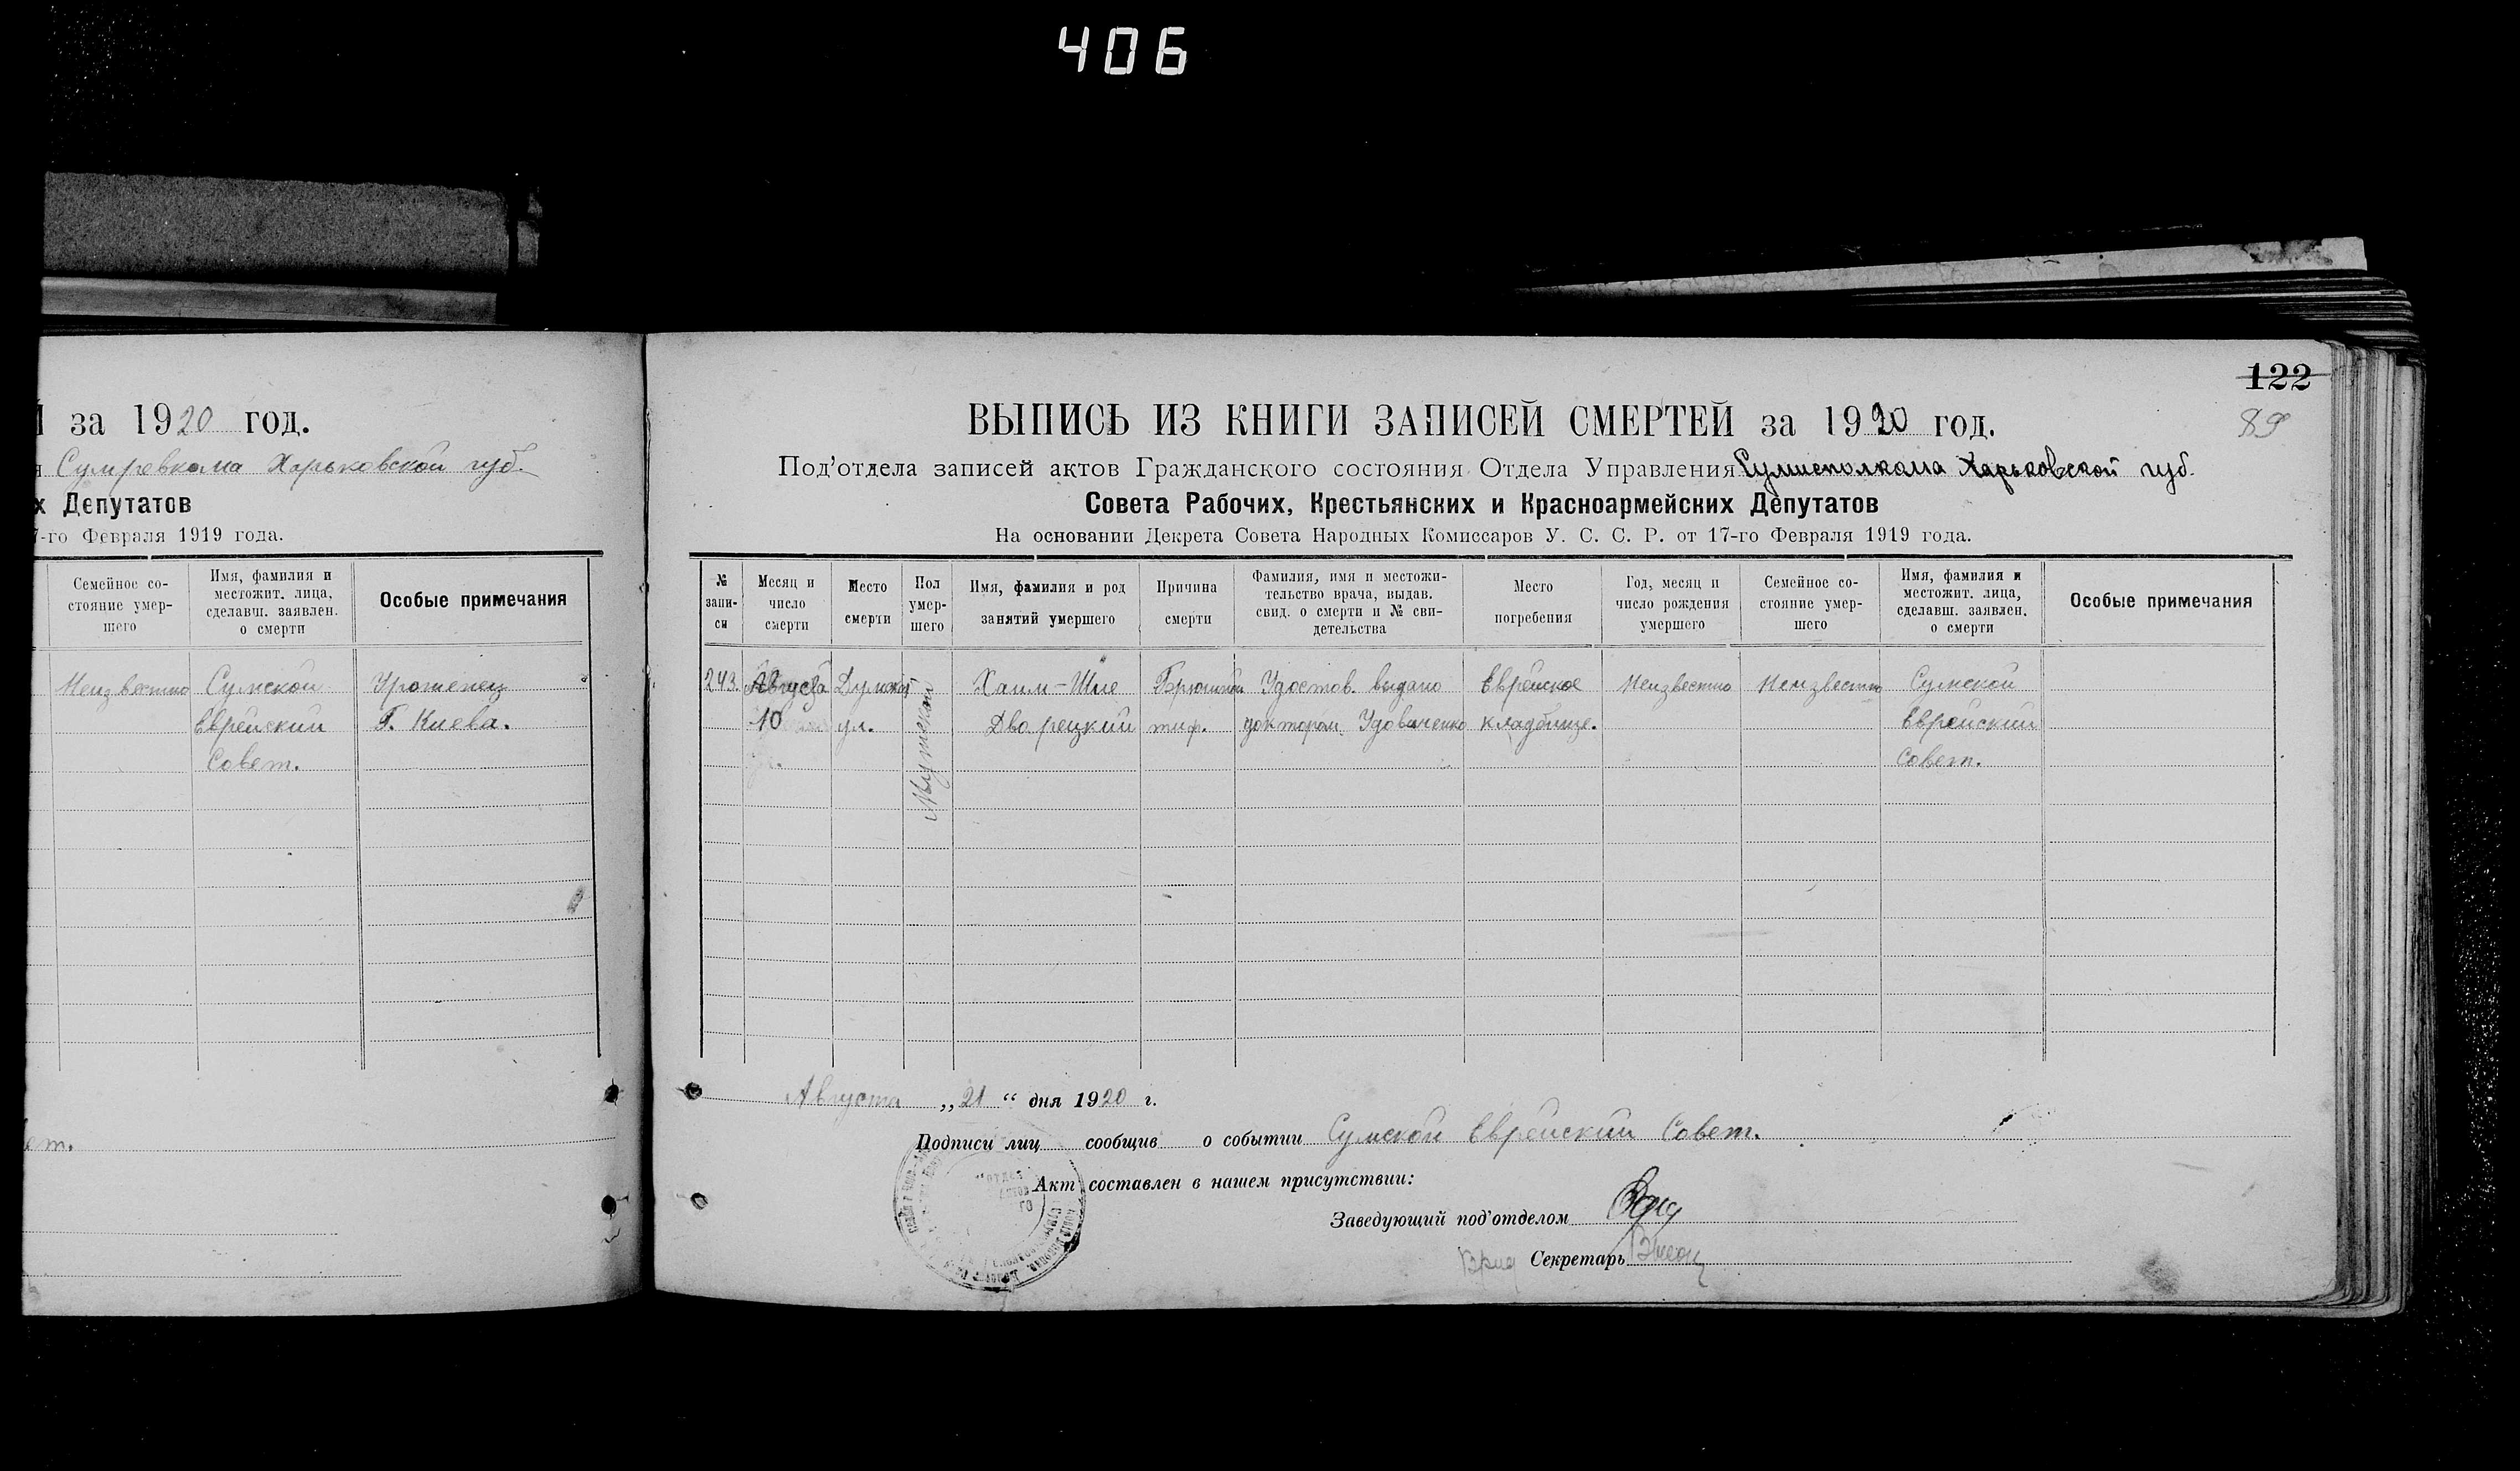 406
за 1920 год.
Сумревкома Харьковской губ.
х Депутатов
7-го Февраля 1919 года.
Семейное со-
стояние умер-
шего
Имя, фамилия и
местожит. лица,
сделавш. заявлен.
о смерти
Особые примечания
Неизвестно
Сумской
Еврейский
Совет.
Уроженец
Г. Киева.
122
89
ВЫПИСЬ ИЗ КНИГИ ЗАПИСЕЙ СМЕРТЕЙ за 1920 год.
Под'отдела записей актов Гражданского состояния Отдела Управления Сумисполкома Харьковской губ.
Совета Рабочих, Крестьянских и Красноармейских Депутатов
На основании Декрета Совета Народных Комиссаров У. С. С. Р. от 17-го Февраля 1919 года.
№
запи-
си
Месяц и
число
смерти
Место
смерти
Пол
умер-
шего
Имя, фамилия и род
занятий умершего
Причина
смерти
Фамилия, имя и местожи-
тельство врача, выдав.
свид. о смерти и № сви-
детельства
Место
погребения
Год, месяц и
число рождения
умершего
Семейное со-
стояние умер-
шего
Имя, фамилия и
местожит. лица,
сделавш. заявлен.
о смерти
Особые примечания
243.
Августа
10
ул.
Мужской
Хаим-Шие
Дворецкий
Брюшной
тиф.
Удостов. выдано
доктором Удовиченко
Еврейское
кладбище.
Неизвестно
Неизвестно
Сумской
Еврейский
Совет.
Августа „21“ дня 1920 г.
Подписи лиц сообщив о событии Сумской Еврейский Совет.
Акт составлен в нашем присутствии:
Заведующий под'отделом
Врид Секретарь